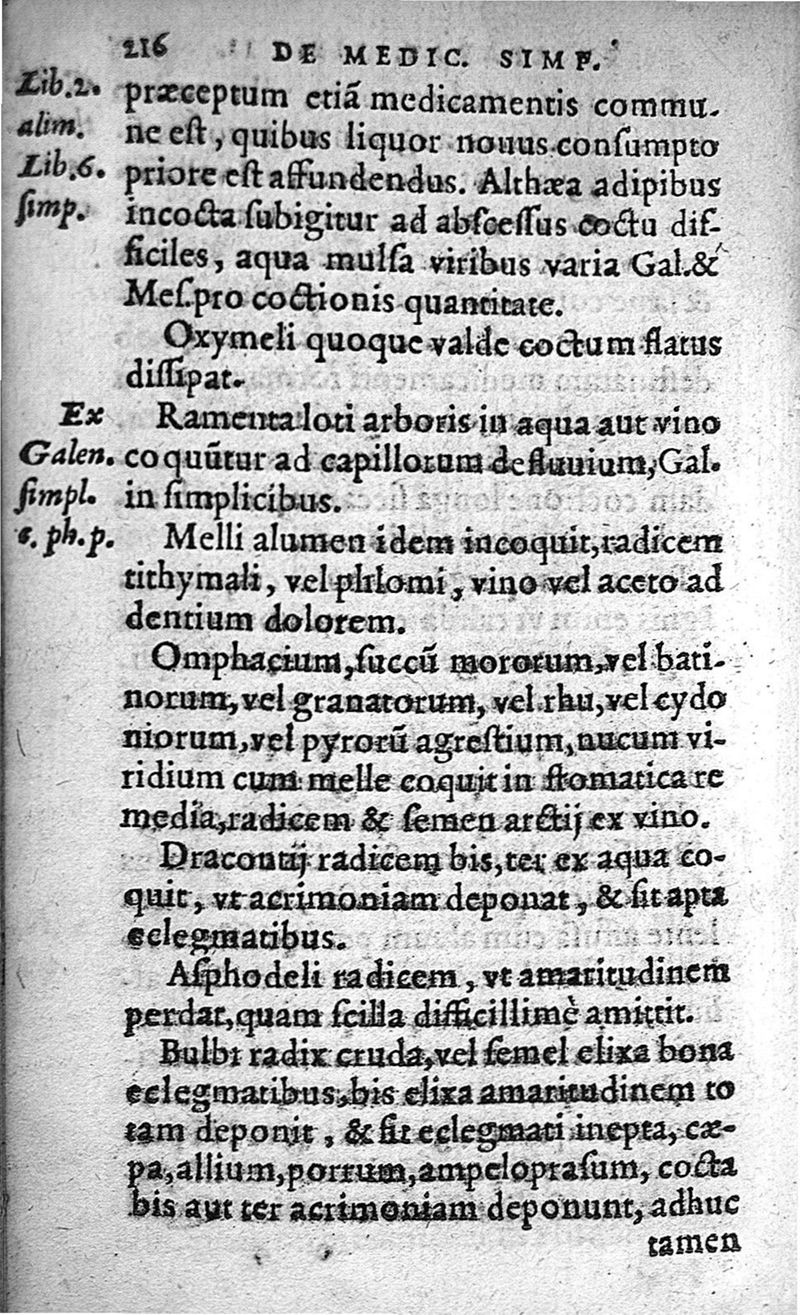 216 DE MEDIC. SIMP.
Lib.2.
alim.
Lib.6.
ſimp.
præceptum etiã medicamentis commu-
ne eſt, quibus liquor nouus conſumpto
priore eſt affundendus. Althæa adipibus
incocta ſubigitur ad abſceſſus coctu dif-
ficiles, aqua mulſa viribus varia Gal.&
Meſ.pro coctionis quantitate.
Oxymeli quoque valde coctum flatus
diſſipat.
Ex
Galen.
ſimpl.
e. ph.p.
Ramenta loti arboris in aqua aut vino
coquũtur ad capillorum defluuium, Gal.
in ſimplicibus.
Melli alumen idem incoquit, radicem
tithymali, vel phlomi, vino vel aceto ad
dentium dolorem.
Omphacium, ſuccũ mororum, vel bati-
norum, vel granatorum, vel rhu, vel cydo
niorum, vel pyrorũ agreſtium, nucum vi-
ridium cum melle coquit in ſtomatica re
media, radicem & ſemen arctij ex vino.
Dracontij radicem bis, ter ex aqua co-
quit, vt acrimoniam deponat, & ſit apta
eclegmatibus.
Aſphodeli radicem, vt amaritudinem
perdat, quam ſcilla difficillimè amittit.
Bulbi radix cruda, vel ſemel elixa bona
eclegmatibus, bis elixa amaritudinem to
tam deponit, & fit eclegmati inepta, cæ-
pa, allium, porrum, ampelopraſum, cocta
bis aut ter acrimoniam deponunt, adhuc
tamen